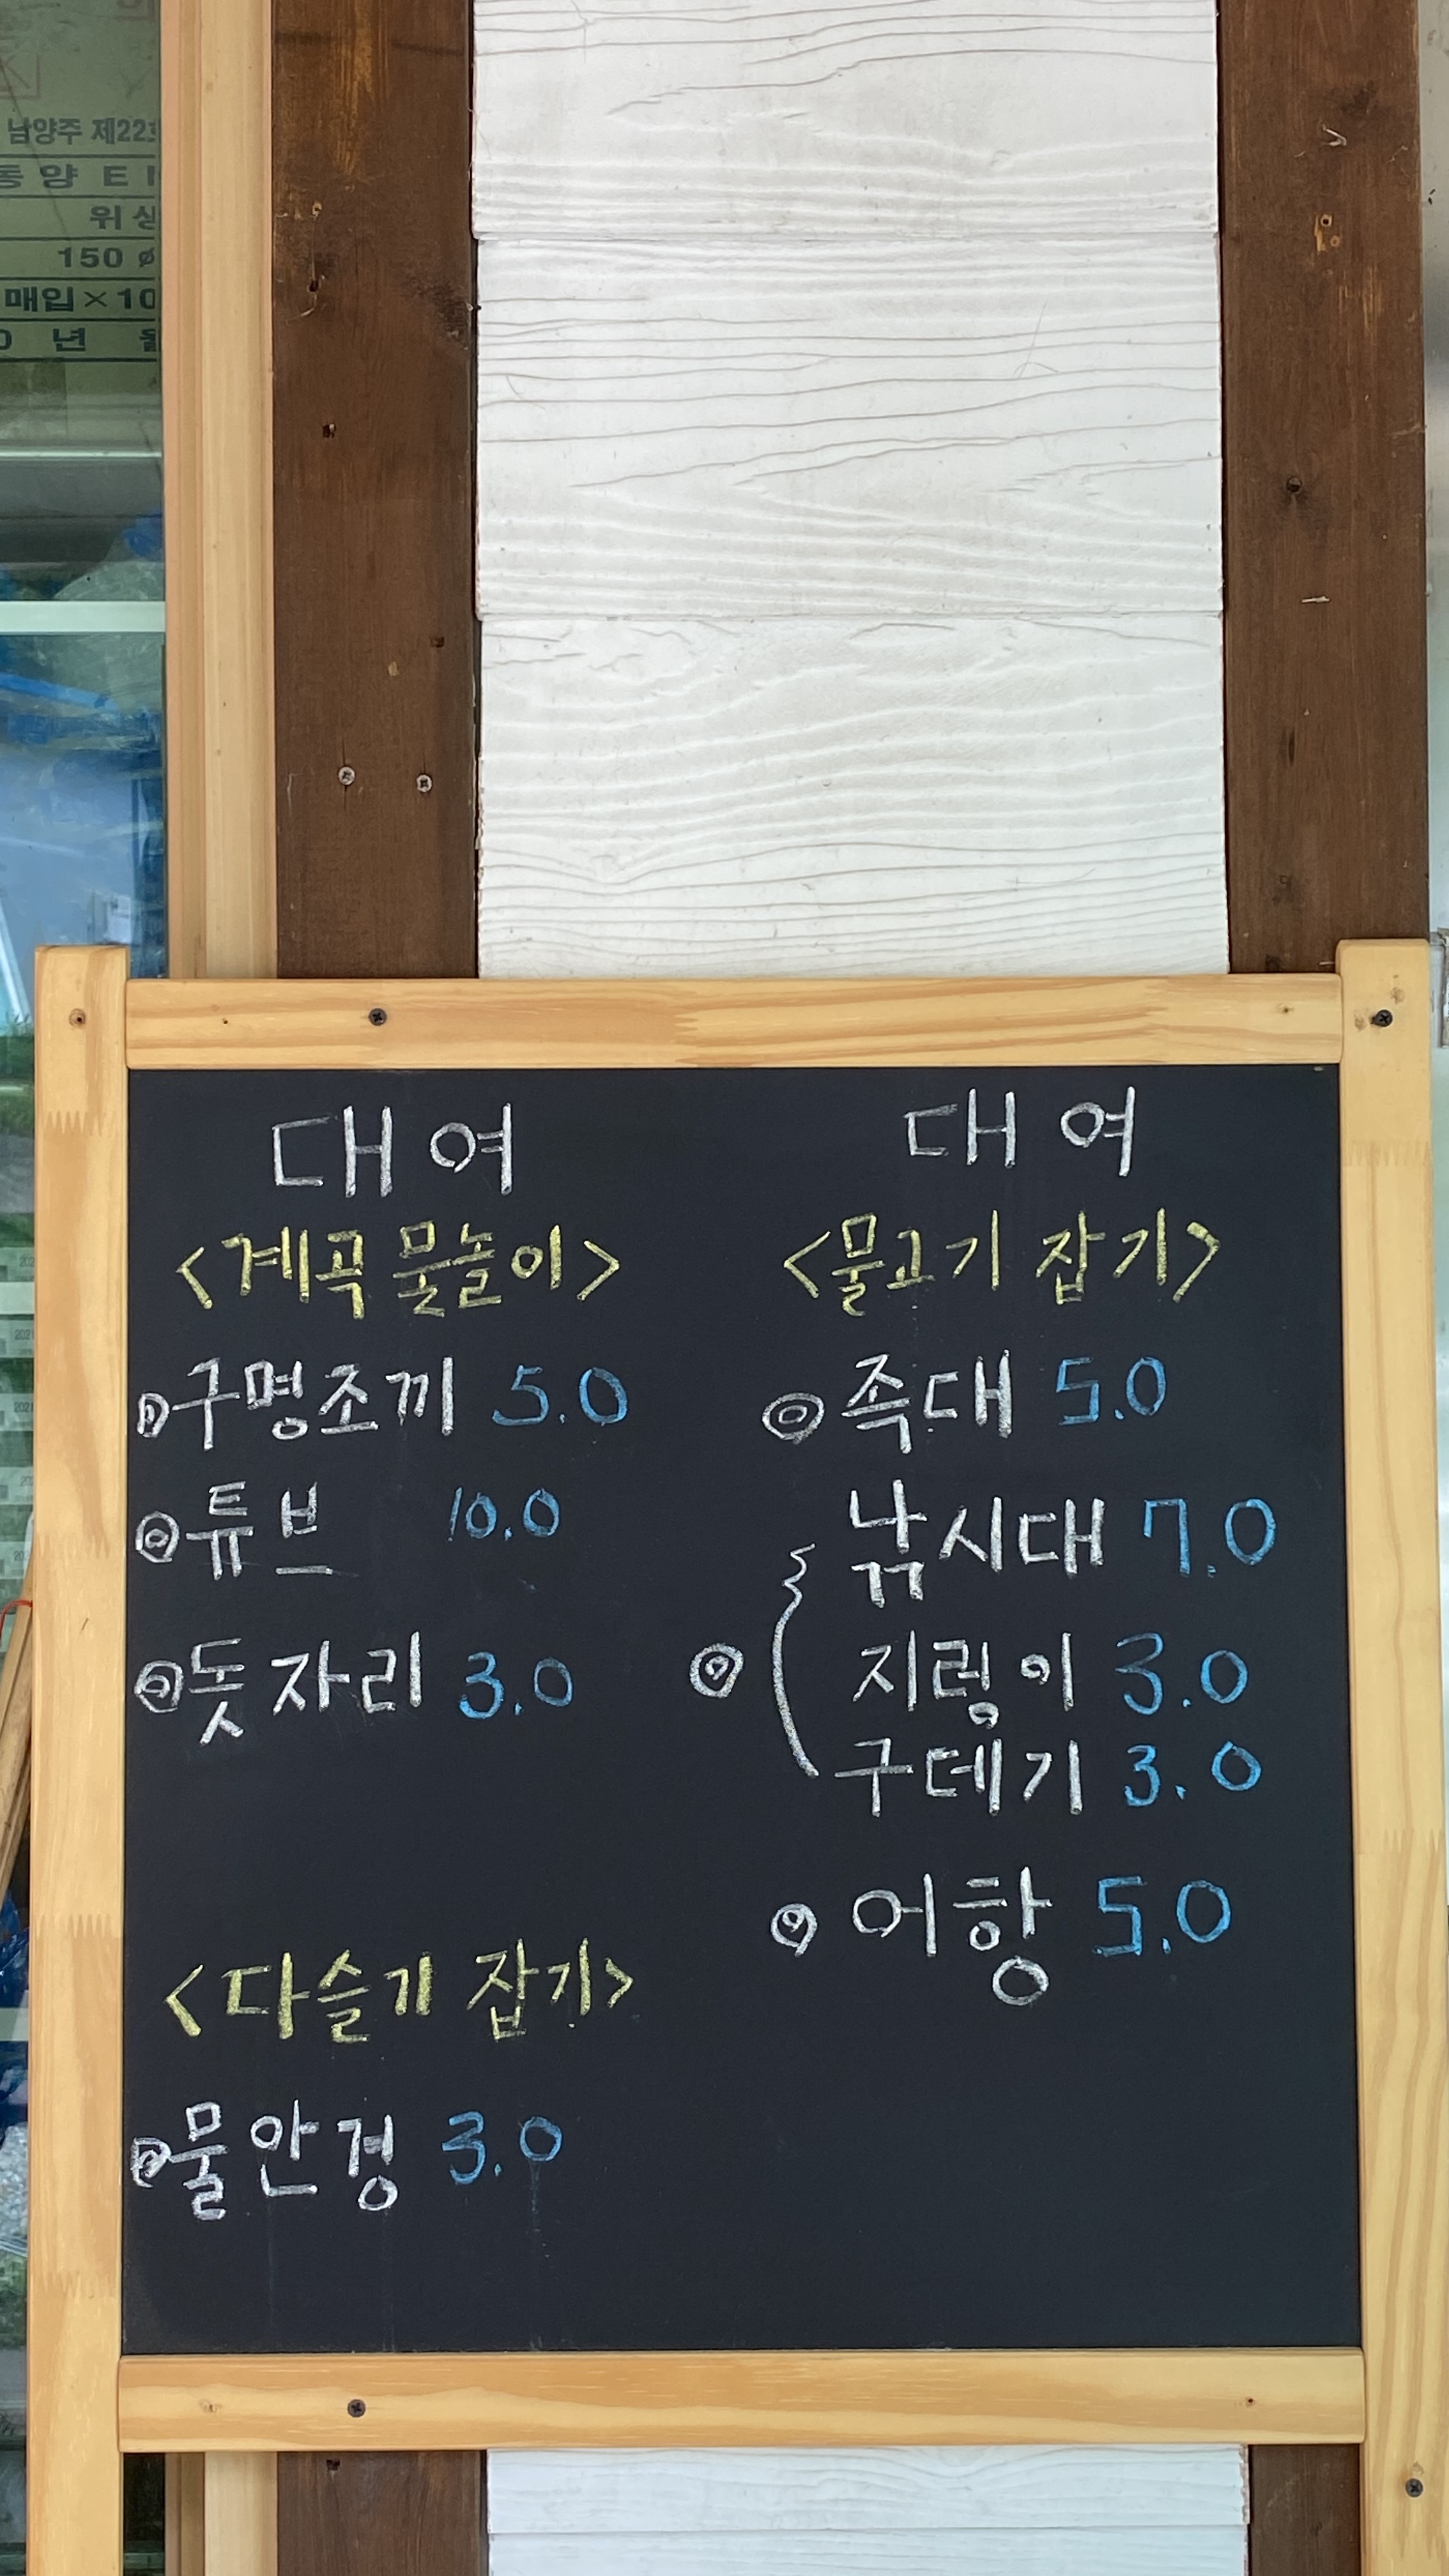 남양주 제22
동양 E
위생
150 ø
매입×10
년 월
대여
<계곡 물놀이>
◎구명조끼 5.0
◎튜브 10.0
◎돗자리 3.0
<다슬기 잡기>
◎물안경 3.0
대여
<물고기 잡기>
◎족대 5.0
낚시대 7.0
◎지렁이 3.0
구데기 3.0
◎어항 5.0